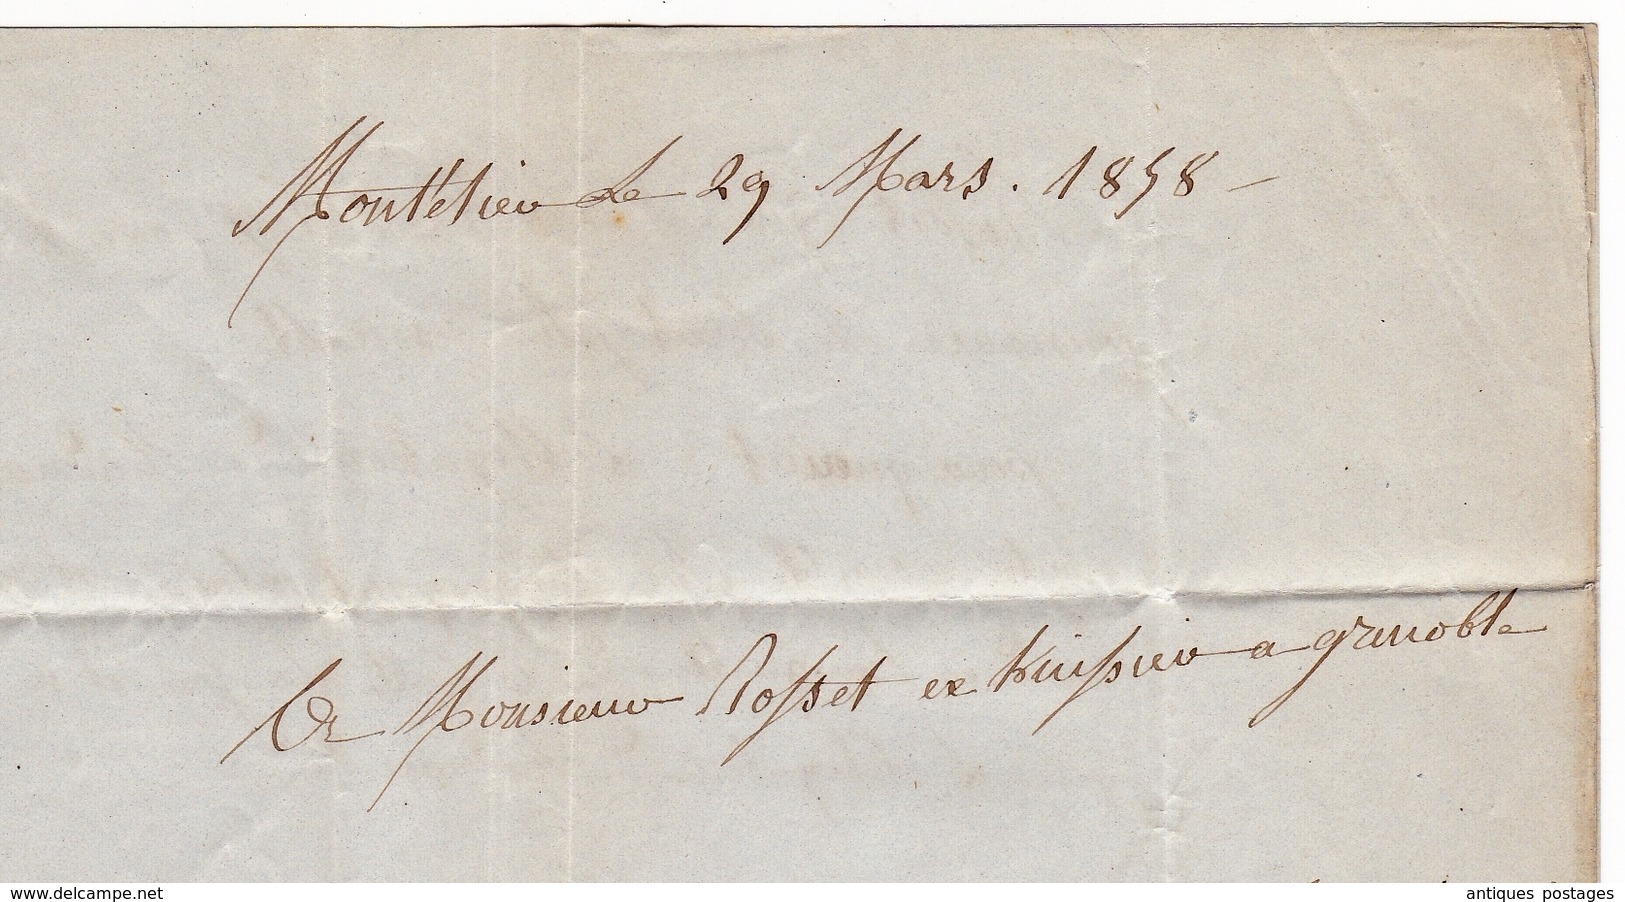 Montelier le 29 Mars. 1858 -
A Monsieur Rosset ex huissier a grenoble
www.delcampe.net
antiques postages